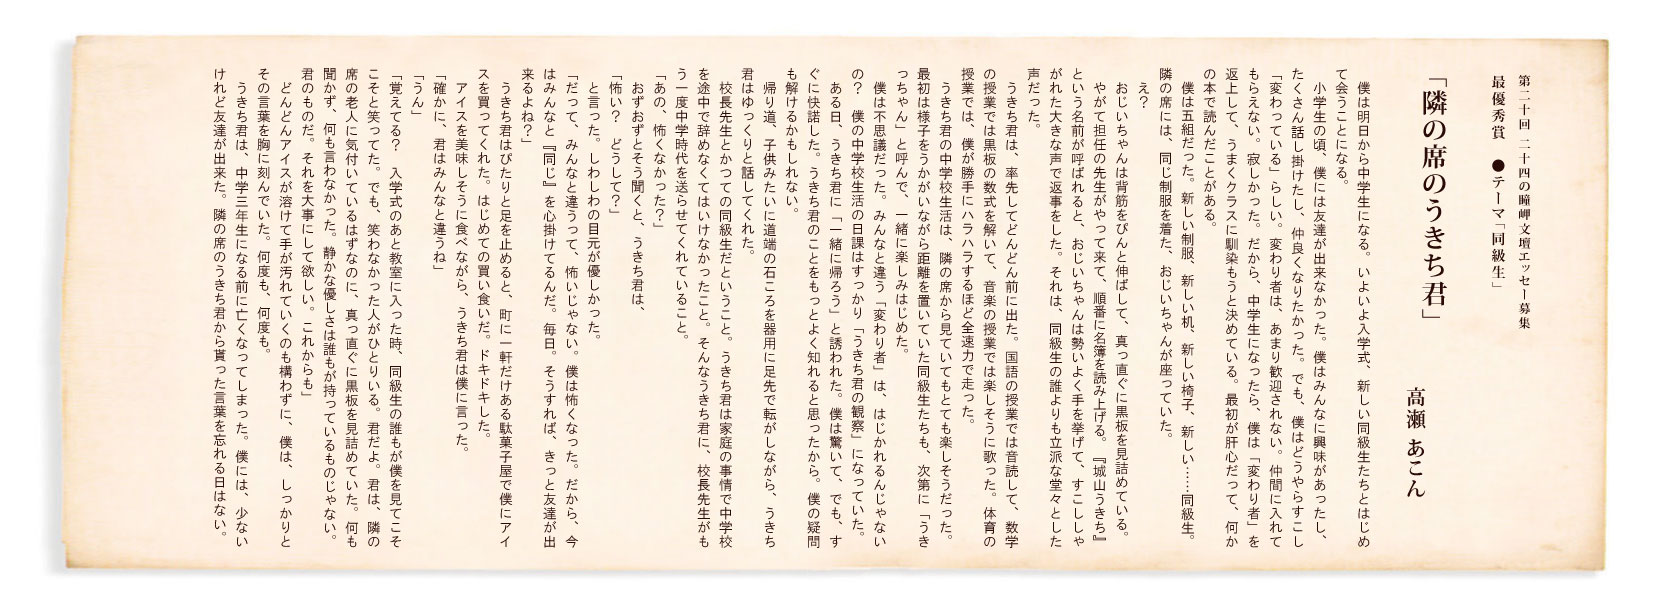 第二十回 二十四の瞳岬文壇エッセー募集
最優秀賞　●テーマ「同級生」
「隣の席のうきち君」
高瀬 あこん
　僕は明日から中学生になる。いよいよ入学式、新しい同級生たちとはじめ
て会うことになる。
　小学生の頃、僕には友達が出来なかった。僕はみんなに興味があったし、
たくさん話し掛けたし、仲良くなりたかった。でも、僕はどうやらすこし
「変わっている」らしい。変わり者は、あまり歓迎されない。仲間に入れて
もらえない。寂しかった。だから、中学生になったら、僕は「変わり者」を
返上して、うまくクラスに馴染もうと決めている。最初が肝心だって、何か
の本で読んだことがある。
　僕は五組だった。新しい制服、新しい机、新しい椅子、新しい……同級生。
隣の席には、同じ制服を着た、おじいちゃんが座っていた。
え？
　おじいちゃんは背筋をぴんと伸ばして、真っ直ぐに黒板を見詰めている。
　やがて担任の先生がやって来て、順番に名簿を読み上げる。『城山うきち』
という名前が呼ばれると、おじいちゃんは勢いよく手を挙げて、すこししゃ
がれた大きな声で返事をした。それは、同級生の誰よりも立派な堂々とした
声だった。
　うきち君は、率先してどんどん前に出た。国語の授業では音読して、数学
の授業では黒板の数式を解いて、音楽の授業では楽しそうに歌った。体育の
授業では、僕が勝手にハラハラするほど全速力で走った。
　うきち君の中学校生活は、隣の席から見ていてもとても楽しそうだった。
最初は様子をうかがいながら距離を置いていた同級生たちも、次第に「うき
っちゃん」と呼んで、一緒に楽しみはじめた。
　僕は不思議だった。みんなと違う「変わり者」は、はじかれるんじゃない
の？　僕の中学校生活の日課はすっかり「うきち君の観察」になっていた。
　ある日、うきち君に「一緒に帰ろう」と誘われた。僕は驚いて、でも、す
ぐに快諾した。うきち君のことをもっとよく知れると思ったから。僕の疑問
も解けるかもしれない。
　帰り道、子供みたいに道端の石ころを器用に足先で転がしながら、うきち
君はゆっくりと話してくれた。
　校長先生とかつての同級生だということ。うきち君は家庭の事情で中学校
を途中で辞めなくてはいけなかったこと。そんなうきち君に、校長先生がも
う一度中学時代を送らせてくれていること。
「あの、怖くなかった？」
　おずおずとそう聞くと、うきち君は、
「怖い？　どうして？」
　と言った。しわしわの目元が優しかった。
「だって、みんなと違うって、怖いじゃない。僕は怖くなった。だから、今
はみんなと『同じ』を心掛けてるんだ。毎日。そうすれば、きっと友達が出
来るよね？」
　うきち君はぴたりと足を止めると、町に一軒だけある駄菓子屋で僕にアイ
スを買ってくれた。はじめての買い食いだ。ドキドキした。
　アイスを美味しそうに食べながら、うきち君は僕に言った。
「確かに、君はみんなと違うね」
「うん」
「覚えてる？　入学式のあと教室に入った時、同級生の誰もが僕を見てこそ
こそと笑ってた。でも、笑わなかった人がひとりいる。君だよ。君は、隣の
席の老人に気付いているはずなのに、真っ直ぐに黒板を見詰めていた。何も
聞かず、何も言わなかった。静かな優しさは誰もが持っているものじゃない。
君のものだ。それを大事にして欲しい。これからも」
　どんどんアイスが溶けて手が汚れていくのも構わずに、僕は、しっかりと
その言葉を胸に刻んでいた。何度も、何度も。
　うきち君は、中学三年生になる前に亡くなってしまった。僕には、少ない
けれど友達が出来た。隣の席のうきち君から貰った言葉を忘れる日はない。